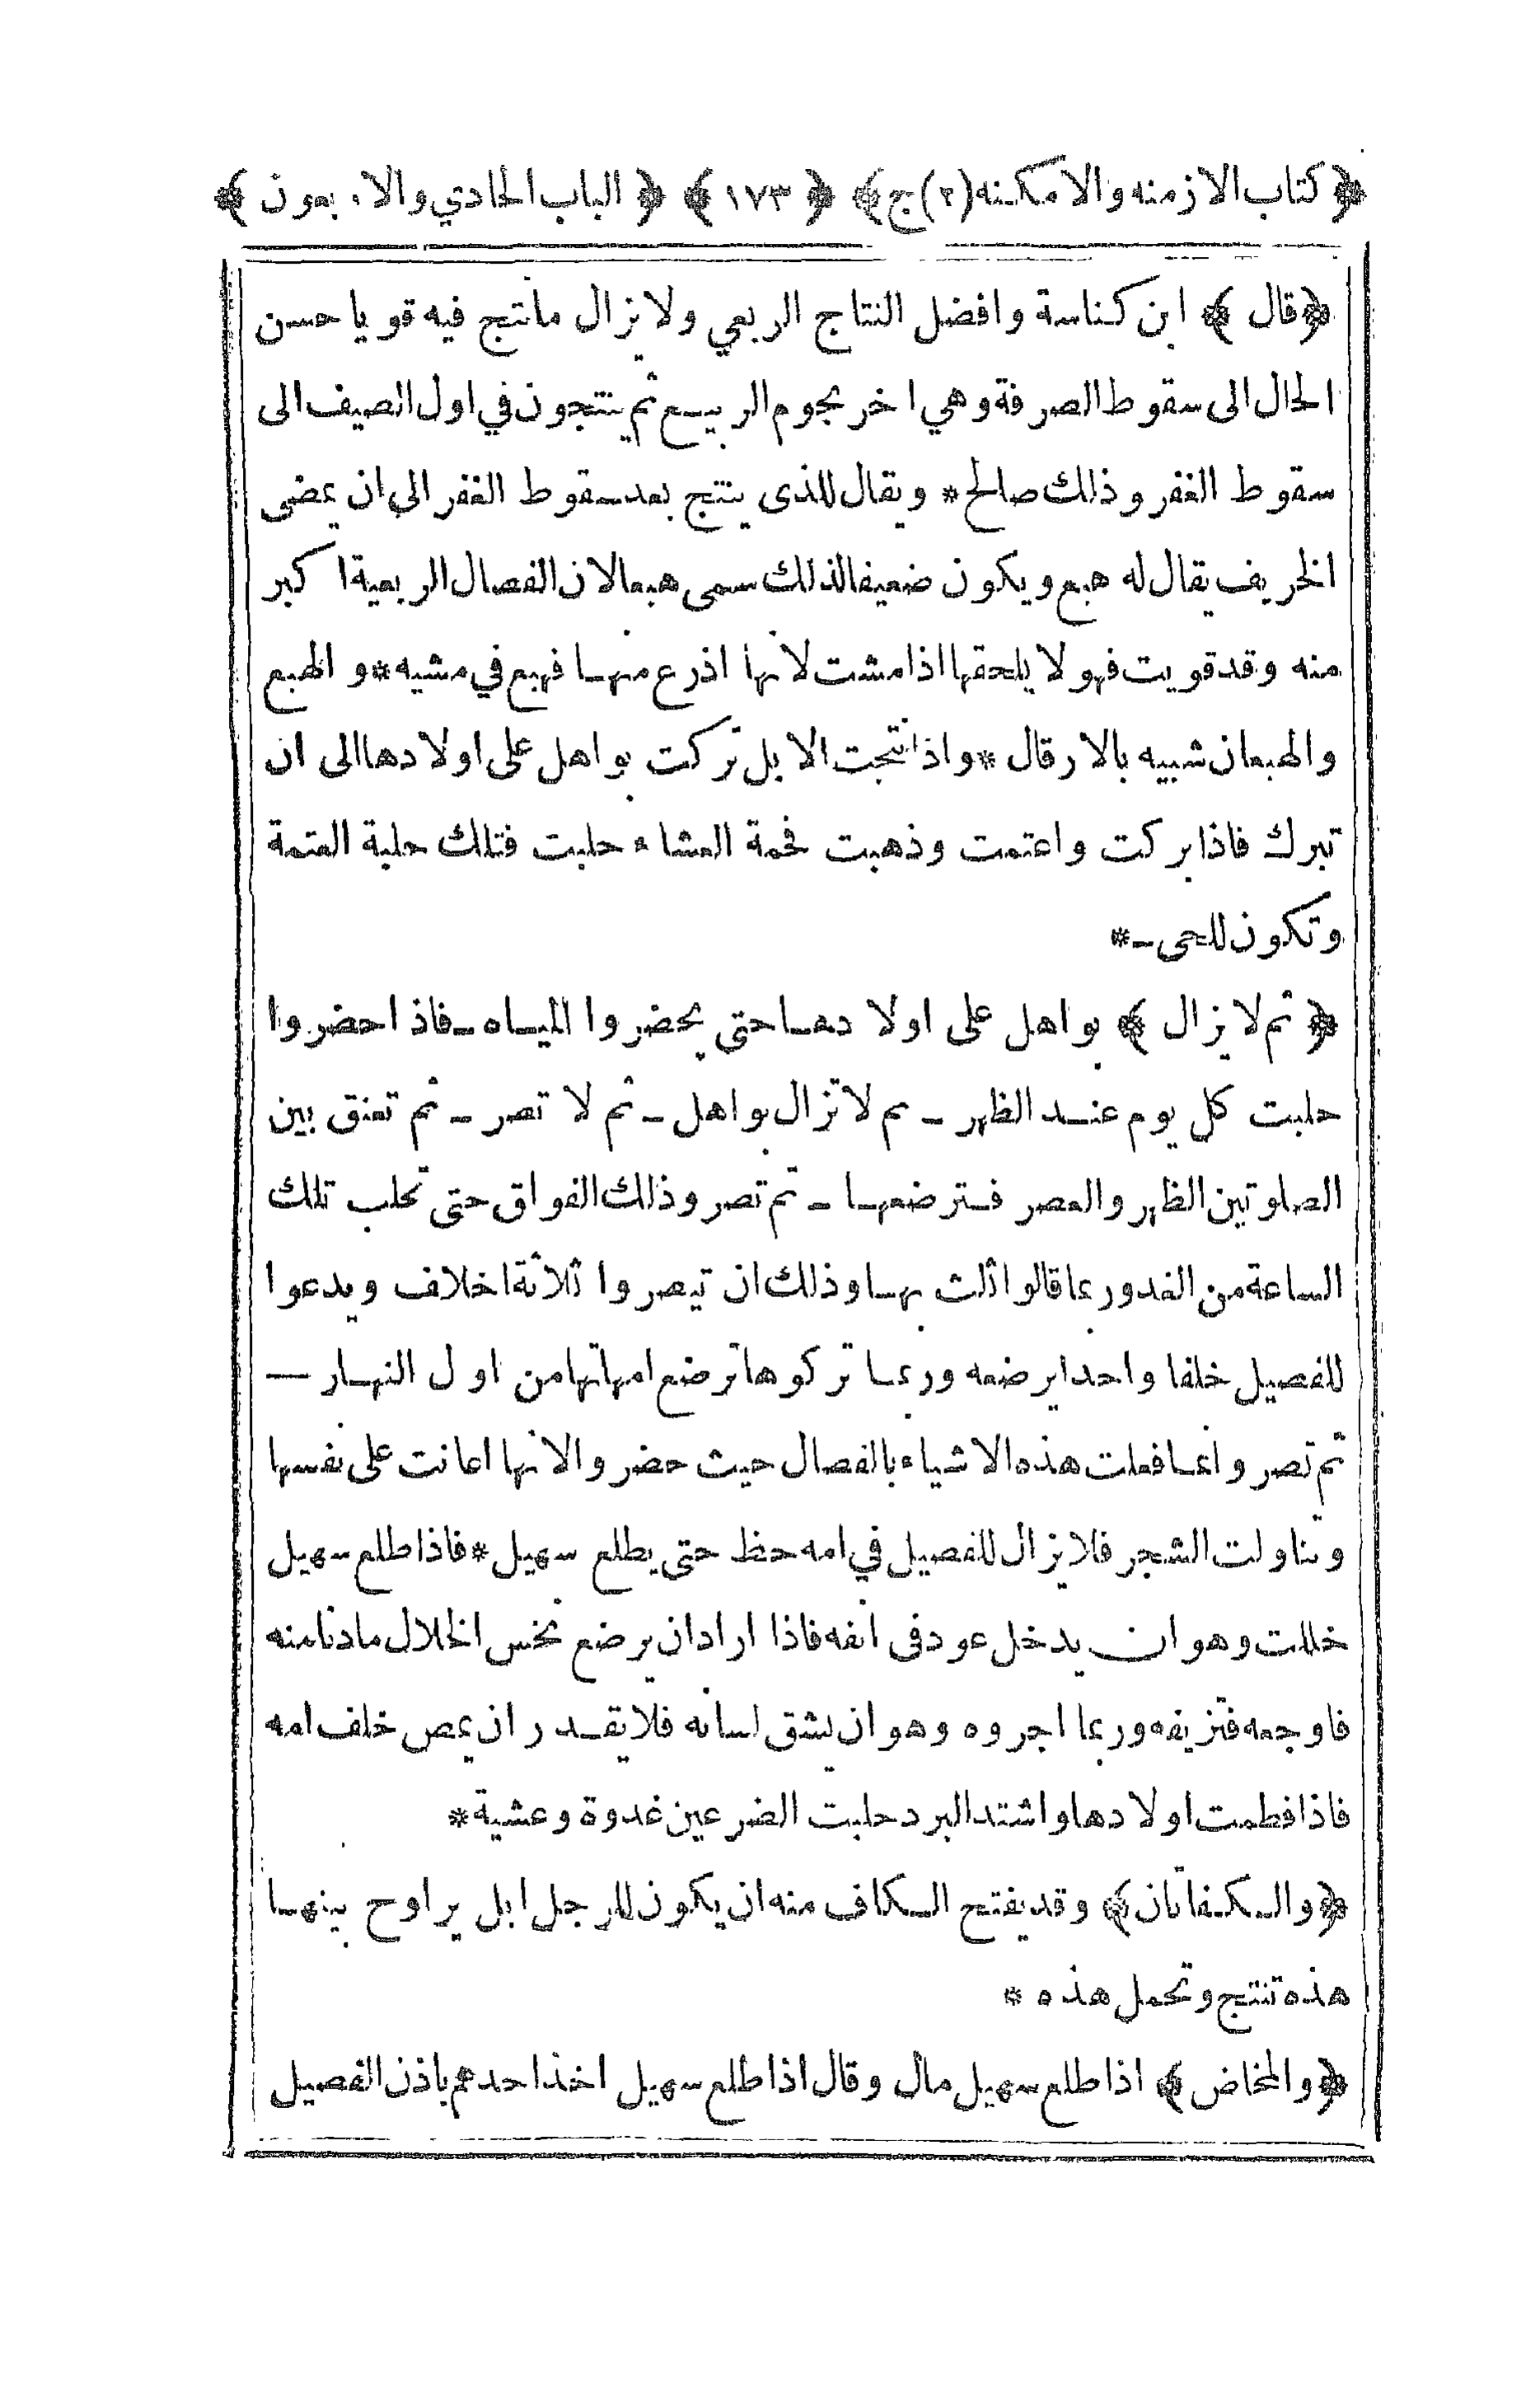 ﴿ كتاب الازمنه والامكنه (٢) ج ﴾ ﴿ ١٧٣ ﴾ ﴿ الباب الحادي والاربعون ﴾
﴿ قال ﴾ ابن كناسة وافضل النتاج الربعي ولا يزال ما نتج فيه قويا حسن
الحال الى سقوط الصرفة وهي اخر نجوم الربيع ثم ينتجون في اول الصيف الى
سقوط الغفر وذلك صالح * ويقال للذى ينتج بعد سقوط الغفر الى ان يمضى
الخريف يقال له هبع ويكون ضعيفا لذلك سمى هبعا لان الفصال الربعية اكبر
منه وقد قويت فهو لا يلحقها اذا مشت لانها اذرع منها فهبع في مشيه * والهبع
والهبعان شبيه بالارقال * واذا نتجت الابل تركت بواهل على اولادها الى ان
تبرك فاذا بركت واعتمت وذهبت فحمة العشاء حلبت فتلك حلبة العتمة
وتكون للحى ـ *
﴿ ثم لا يزال ﴾ بواهل على اولادها حتى يحضروا المياه ـ فاذا حضروا
حلبت كل يوم عند الظهر ـ ثم لا تزال بواهل ـ ثم لا تصر ـ ثم تعنق بين
الصلوتين الظهر والعصر فترضعها ـ ثم تصر وذلك الفواق حتى تحلب تلك
الساعة من الغد وربما قالوا ثلث بها وذلك ان تيصروا ثلاثة اخلاف ويدعوا
للفصيل خلفا واحدا يرضعه وربما تركوها ترضع امهاتها من اول النهار —
ثم تصر وانما فعلت هذه الاشياء بالفصال حيث حضروا لانها اعانت على نفسها
وتناولت الشجر فلا يزال للفصيل في امه حظ حتى يطلع سهيل * فاذا طلع سهيل
خللت وهو ان يدخل عود فى انفه فاذا اراد ان يرضع نخس الخلال ما دنا منه
فاوجعه فتزيفه وربما اجروه وهو ان يشق لسانه فلا يقدر ان يمص خلف امه
فاذا فطمت اولادها واشتد البرد حلبت الضرعين غدوة وعشية *
﴿ والكفاتان ﴾ وقد يفتح الكاف منه ان يكون للرجل ابل يراوح بينها
هذه تنتج وتحمل هذه *
﴿ والمخاض ﴾ اذا طلع سهيل مال وقال اذا طلع سهيل اخذ احدهم باذن الفصيل